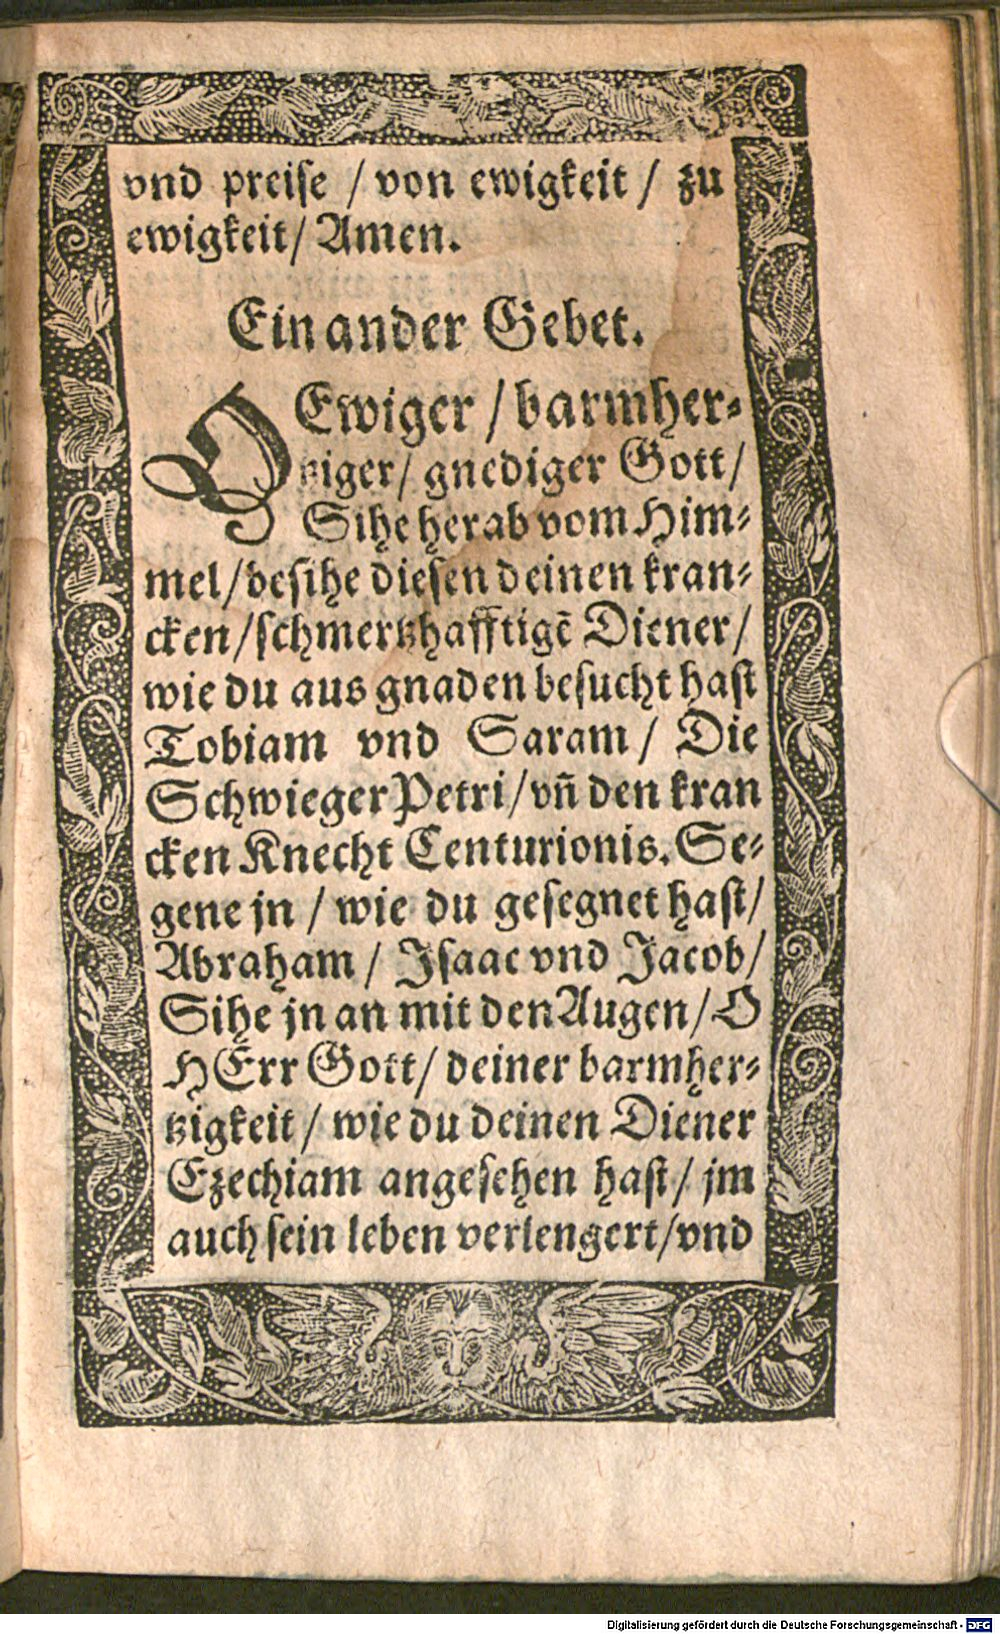 vnd preise / von ewigkeit / zu
ewigkeit / Amen.
Ein ander Gebet.
O Ewiger / barmher-
tziger / gnediger Gott /
Sihe herab vom Him-
mel / besihe diesen deinen kran-
cken / schmertzhafftigẽ Diener /
wie du aus gnaden besucht hast
Tobiam vnd Saram / Die
Schwieger Petri / vñ den kran
cken Knecht Centurionis. Se-
gene jn / wie du gesegnet hast /
Abraham / Isaac vnd Jacob /
Sihe jn an mit den Augen / O
HErr Gott / deiner barmher-
tzigkeit / wie du deinen Diener
Ezechiam angesehen hast / jm
auch sein leben verlengert / vnd
Digitalisierung gefördert durch die Deutsche Forschungsgemeinschaft - DFG